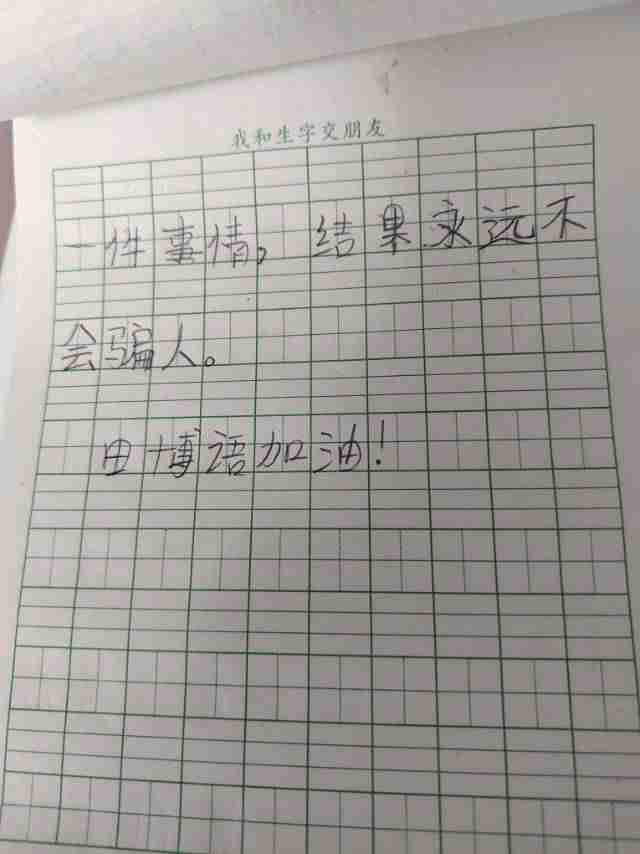 我和生字交朋友
一件事情，结果永远不
会骗人。
田博语加油！